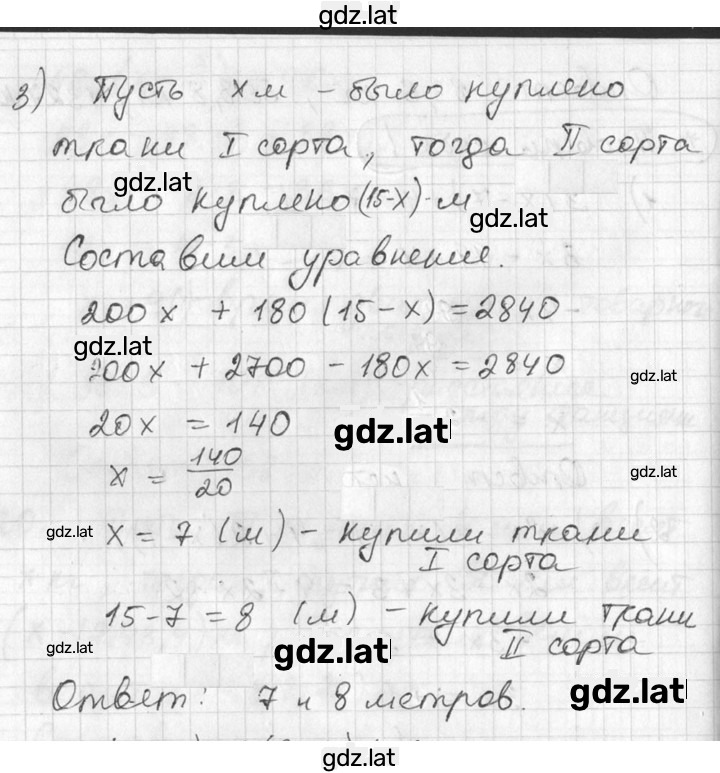 gdz.lat
3) Пусть x м – было куплено
ткани I сорта, тогда II сорта
gdz.lat
было куплено (15-x) м
gdz.lat
Составим уравнение.
200x + 180 (15 - x) = 2840
gdz.lat
200x + 2700 - 180x = 2840
gdz.lat
20x = 140
gdz.lat
x = 140/20
gdz.lat
gdz.lat
x = 7 (м) – купили ткани
I сорта
15-7 = 8 (м) – купили ткани
II сорта
gdz.lat
gdz.lat
Ответ: 7 и 8 метров.
gdz.lat
gdz.lat